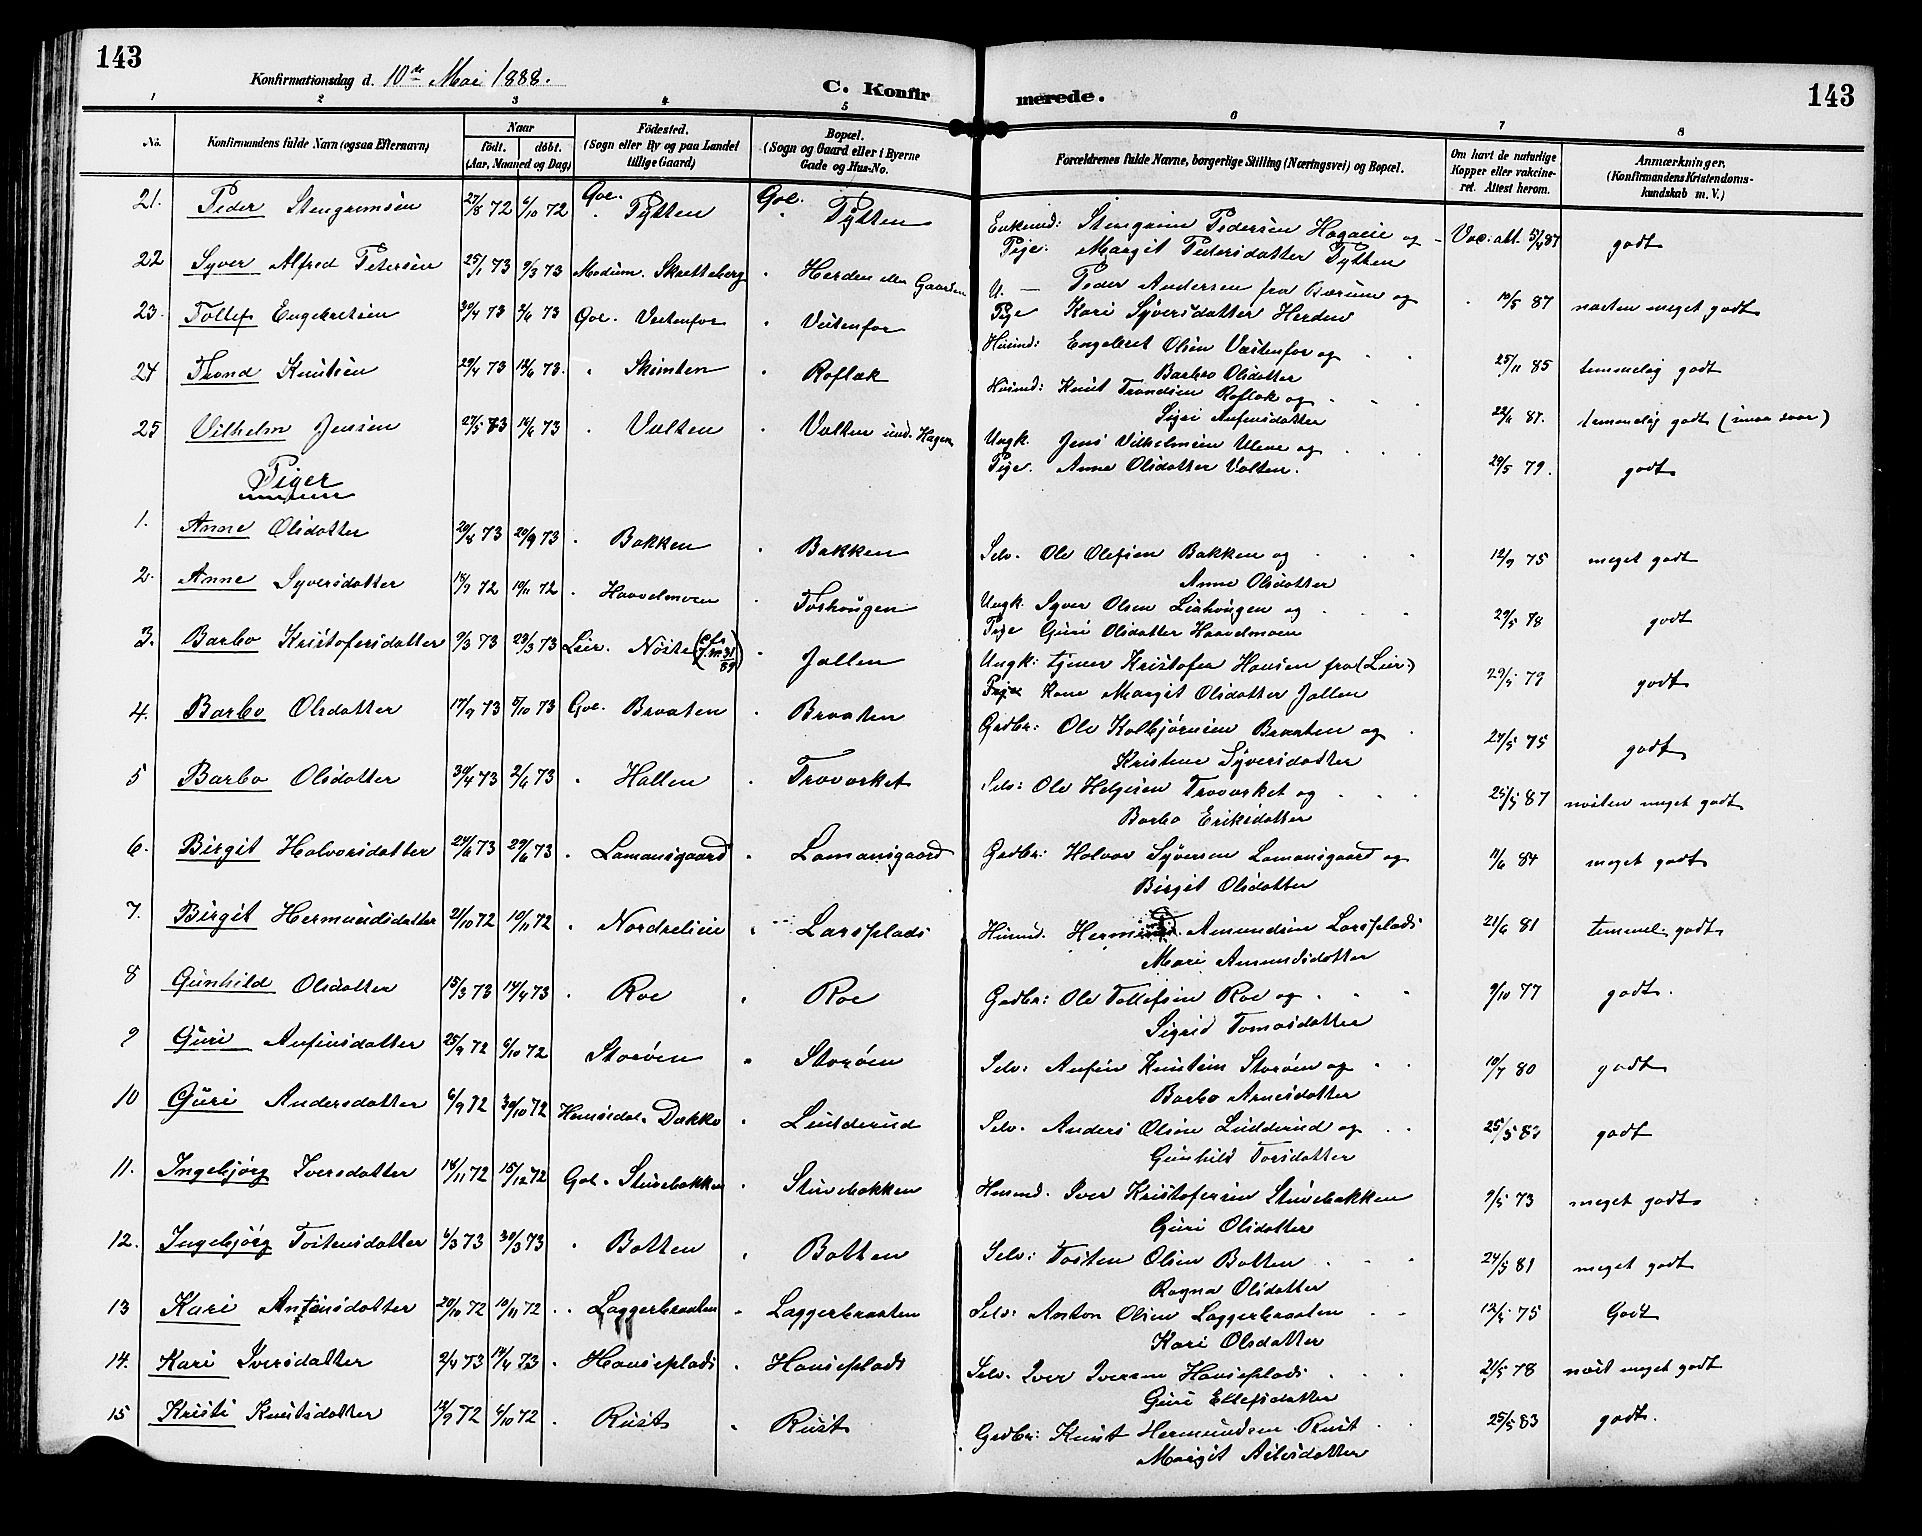 143
Konfirmationsdag d. 10de Mai 1888.
C. Konfirmerede.
143
1 2 3 4 5 6 7 8
No. Konfirmandens fulde Navn (ogsaa Efternavn) Naar födt. döbt. (Aar, Maaned og Dag) Födested. (Sogn eller By og paa Landet tillige Gaard) Bopæl. (Sogn og Gaard eller i Byerne Gade og Hus-No. Forældrenes fulde Navne, borgerlige Stilling (Næringsvei) og Bopæl. Om havt de naturlige Kopper eller vakcineret. Attest herom. Anmærkninger. (Konfirmandens Kristendomskundskab m. V.)
21. Peder Stengrimsen 27/8 72 6/10 72 Gol. Tytten Gol. Tytten Enkemd: Stengrim Pedersen Hagaeie og Vac: att. 5/4 87 godt
Pige: Margit Pedersdatter Tytten
22 Syver Alfred Petersen 25/1 73 9/3 73 Modum. Skretteberg " Herden eller Gaarden U. — Peder Andersen fra Bærum og " 10/5 87 næsten meget godt
Pige Kari Syversdatter Herden
23. Tollef Engebretsen 30/4 73 2/6 73 Gol. Vestenfor " Vestenfor Husmd: Engebret Olsen Vestenfor og 25/11 85 temmelig godt
Barbro Olsdatter
24 Trond Knutsen 29/4 73 12/6 73. " Skinten " Roflak Husmd: Knut Trondsen Roflak og 22/6 87. temmelig godt (innaa svar)
Sigri Anfinsdatter
25 Vilhelm Jensen 27/5 73 14/6 73 " Valten " Valten und. Hagen Ungk. Jens Vilhelmsen Ulene og 29/5 79. godt
Pige. Anne Olsdatter Valten.
Piger
1. Anne Olsdatter 20/8 73 20/9 73 " Bakken " Bakken Selv. Ole Olefsen Bakken og 12/9 75 meget godt
Anne Olsdatter
2. Anne Syversdatter 18/9 72 10/11 72 " Haavelmoen " Torhougen Ungk. Syver Olsen Liahougen og 29/5 78 godt
Pige Guri Olsdatter Haavelmoen
3. Barbo Kristofersdatter 9/3 73 23/3 73 Lier. Nöste " Jallen Ungk: tjener Kristofer Hansen fra (Lier) 29/5 79 godt
Pige Kone Margit Olsdatter Jallen
4. Barbo Olsdatter 17/9 73 5/10 73 Gol. Braaten " Braaten Grdbr: Ole Kolbjørnsen Braaten og 27/5 75 godt
Kristine Syversdatter
5 Barbo Olsdatter 30/4 73 2/6 73 " Hallen " Trovarket Selv: Ole Helgesen Trovarket og 25/5 87 næsten meget godt
Barbo Eriksdatter
6. Birgit Halvorsdatter 24/6 73 29/6 73 " Lamansgaard " Lamansgaard Grdbr: Halvor Syversen Lamansgaard og 11/6 84 meget godt
Birgit Olsdatter
7. Birgit Hermundsdatter 21/10 72 10/11 72 " Nordrelien " Larsplads Husmd. Hermund Amundsen Larsplads 21/6 81 temmel. godt
Mari Amundsdatter
8 Gunhild Olsdatter 15/3 73 14/4 73 " Roe " Roe Grdbr: Ole Tollefsen Roe og 9/10 77 godt.
Sigrid Tomasdatter
9 Guri Anfinsdatter 25/9 72 6/10 72 Storöen " Storöen Selv: Anfin Knutsen Storöen og 10/7 80 godt
Barbo Arnesdatter
10 Guri Andersdatter 6/9 72 30/10 72 Hemsedal. Dokko " Ludderud Selv. Anders Olsen Ludderud og 25/5 83 godt
Gunhild Torsdatter
11. Ingebjørg Iversdatter 18/11 72 15/12 72 Gol. Stuvebakken " Stuvebakken Husmd. Iver Kristofersen Stuvebakken 9/5 73 meget godt
Guri Olsdatter
12. Ingebjörg Tostensdatter 6/3 73 30/3 73 " Botten " Botten Selv: Tosten Olsen Botten 24/5 81 meget godt
Ragna Olsdatter
13 Kari Antonsdatter 20/10 72 10/11 72 " Laggerbraaten " Laggerbraaten Selv: Anton Olsen Laggerbraaten 12/5 75 Godt
Kari Olsdatter
14. Kari Iversdatter 2/4 73 14/4 73 " Hauseplads " Hauseplads Selv. Iver Iversen Hauseplads 21/5 78 næst meget godt
Guri Ellefsdatter
15 Kristi Knutsdatter 12/9 72 6/10 72 " Rust " Rust Grdbr: Knut Hermundsen Rust 25/5 83 godt.
Margit Asledatter